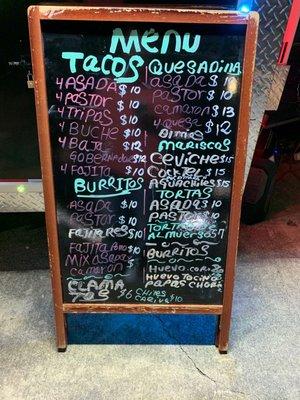 Menu
Tacos
4 ASADA $10
4 PASTOR $10
4 TRIPAS $10
4 BUCHE $10
4 BAJA $12
GOBERNADOR $12
4 FAJITA $10
BURRITOS
ASADA $10
PASTOR $10
FAJITA RES $10
FAJITA POLLO $10
MIX ASADA
CAMARON
CLAMA
TOS $6 CHIVES
CARIVA $10
QUESADILLA
ASADA $10
PASTOR $10
CAMARON $13
4 QUESA $12
MARISCOS
CEVICHES $15
COCTEL $15
AGUACHILES $15
TORTAS
ASADA $10
PASTOR $10
TORTAS
ALMUERSOS
BURRITOS
HUEVO
HUEVO TOCINO
PAPAS CHORI